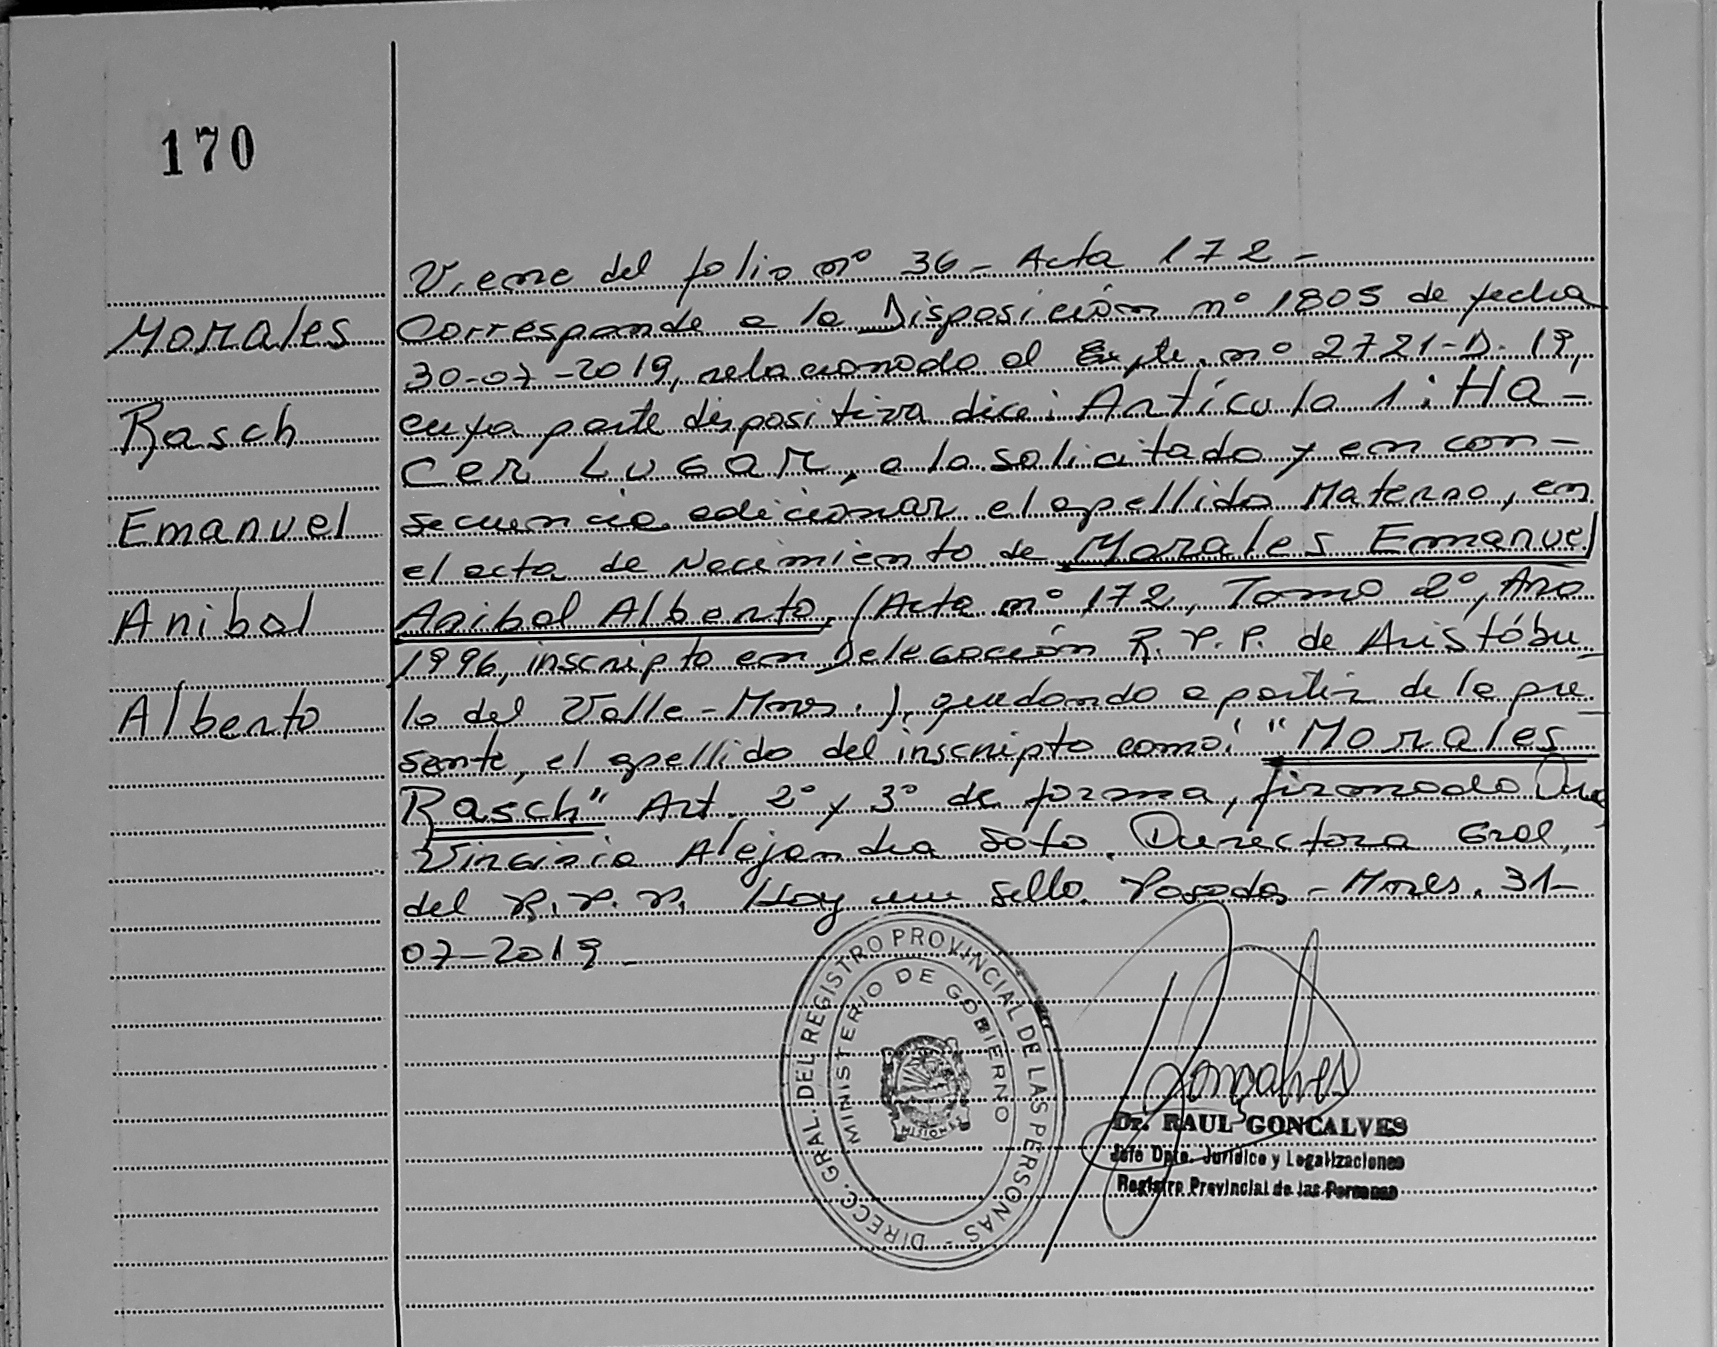 170
Viene del folio nº 36 - Acta 172 -
Morales
Rasch
Emanuel
Anibal
Alberto
Corresponde a la Disposición nº 1805 de fecha
30-07-2019, relacionado al Expte. nº 2721-D-19,
cuya parte dispositiva dice: Artículo 1: HA-
CER LUGAR, a lo solicitado y en con-
secuencia adicionar el apellido Materno, en
el acta de Nacimiento de Morales Emanuel
Anibal Alberto (Acta nº 172, Tomo 2º, Año
1996, inscripto en Delegación R.P.P. de Aristóbu-
lo del Valle - Mnes.), quedando a partir de la pre-
sente, el apellido del inscripto como: "Morales
Rasch" Art. 2º y 3º de forma, firmado
Virginia Alejandra Soto. Directora Gral,
del R.P.P. Hay un sello. Posadas - Mnes. 31-
07-2019 -
DIRECC. GRAL. DEL REGISTRO PROVINCIAL DE LAS PERSONAS -
MINISTERIO DE GOBIERNO
MISIONES
Goncalves
Dr. RAUL GONCALVES
Jefe Dpto. Jurídico y Legalizaciones
Registro Provincial de las Personas